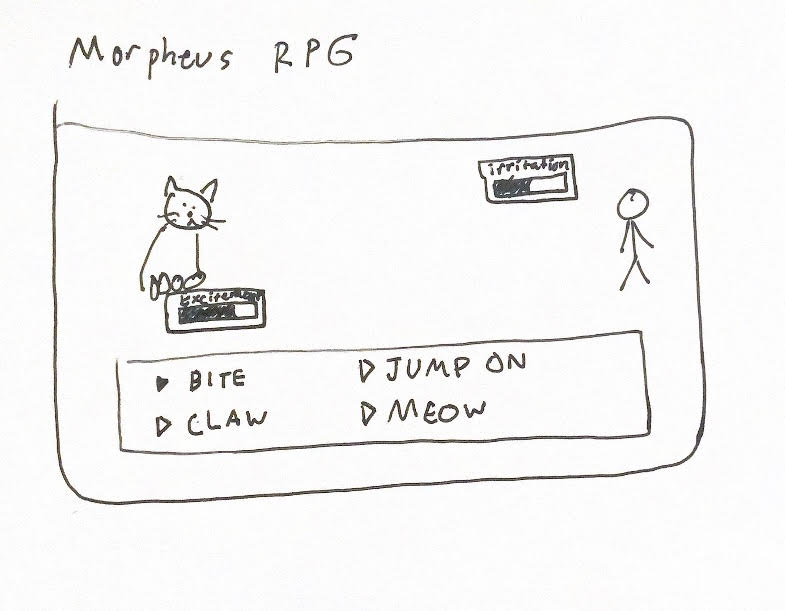 Morpheus RPG
irritation
Excitement
BITE
JUMP ON
CLAW
MEOW